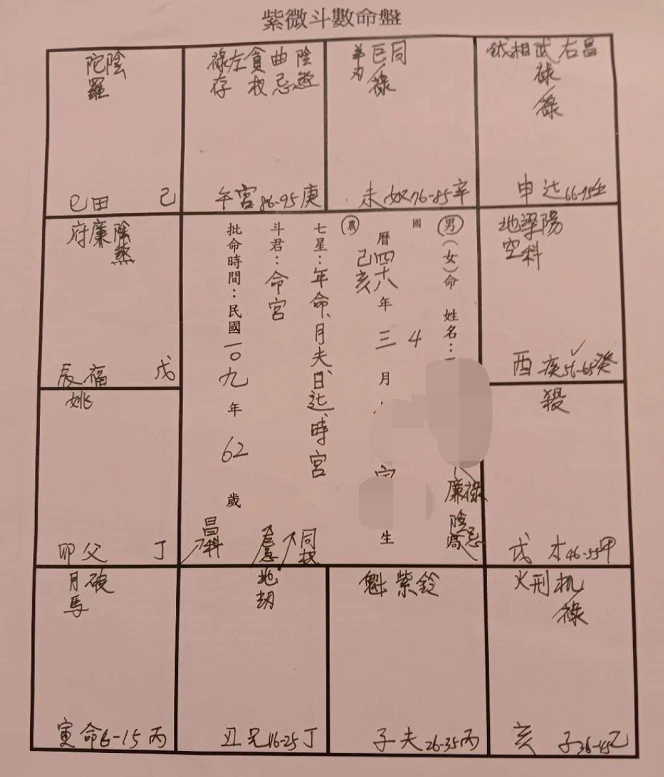 紫微斗數命盤
陀陰
羅
巳田 己
祿左貪曲陰
存 权忌煞
午宮86-95庚
巨同
祿
未奴76-85辛
鉞相武右昌
祿
祿
申迁66-75壬
府廉陰
煞
辰福 戊
男(女)命 姓名:
國
曆四十八年三月 生
農
己亥 4
七星:年命、月夫日迁時宮
斗君:命宮
批命時間:民國一0九年62歲
地梁陽
空科
酉疾56-65癸
姚
卯父 丁
殺
戌才46-55甲
廉祿
陰忌
昌科
同权
月破
馬
寅命6-15丙
地
劫
丑兄16-25丁
魁紫鈴
子夫26-35丙
火刑机
祿
亥子36-45乙